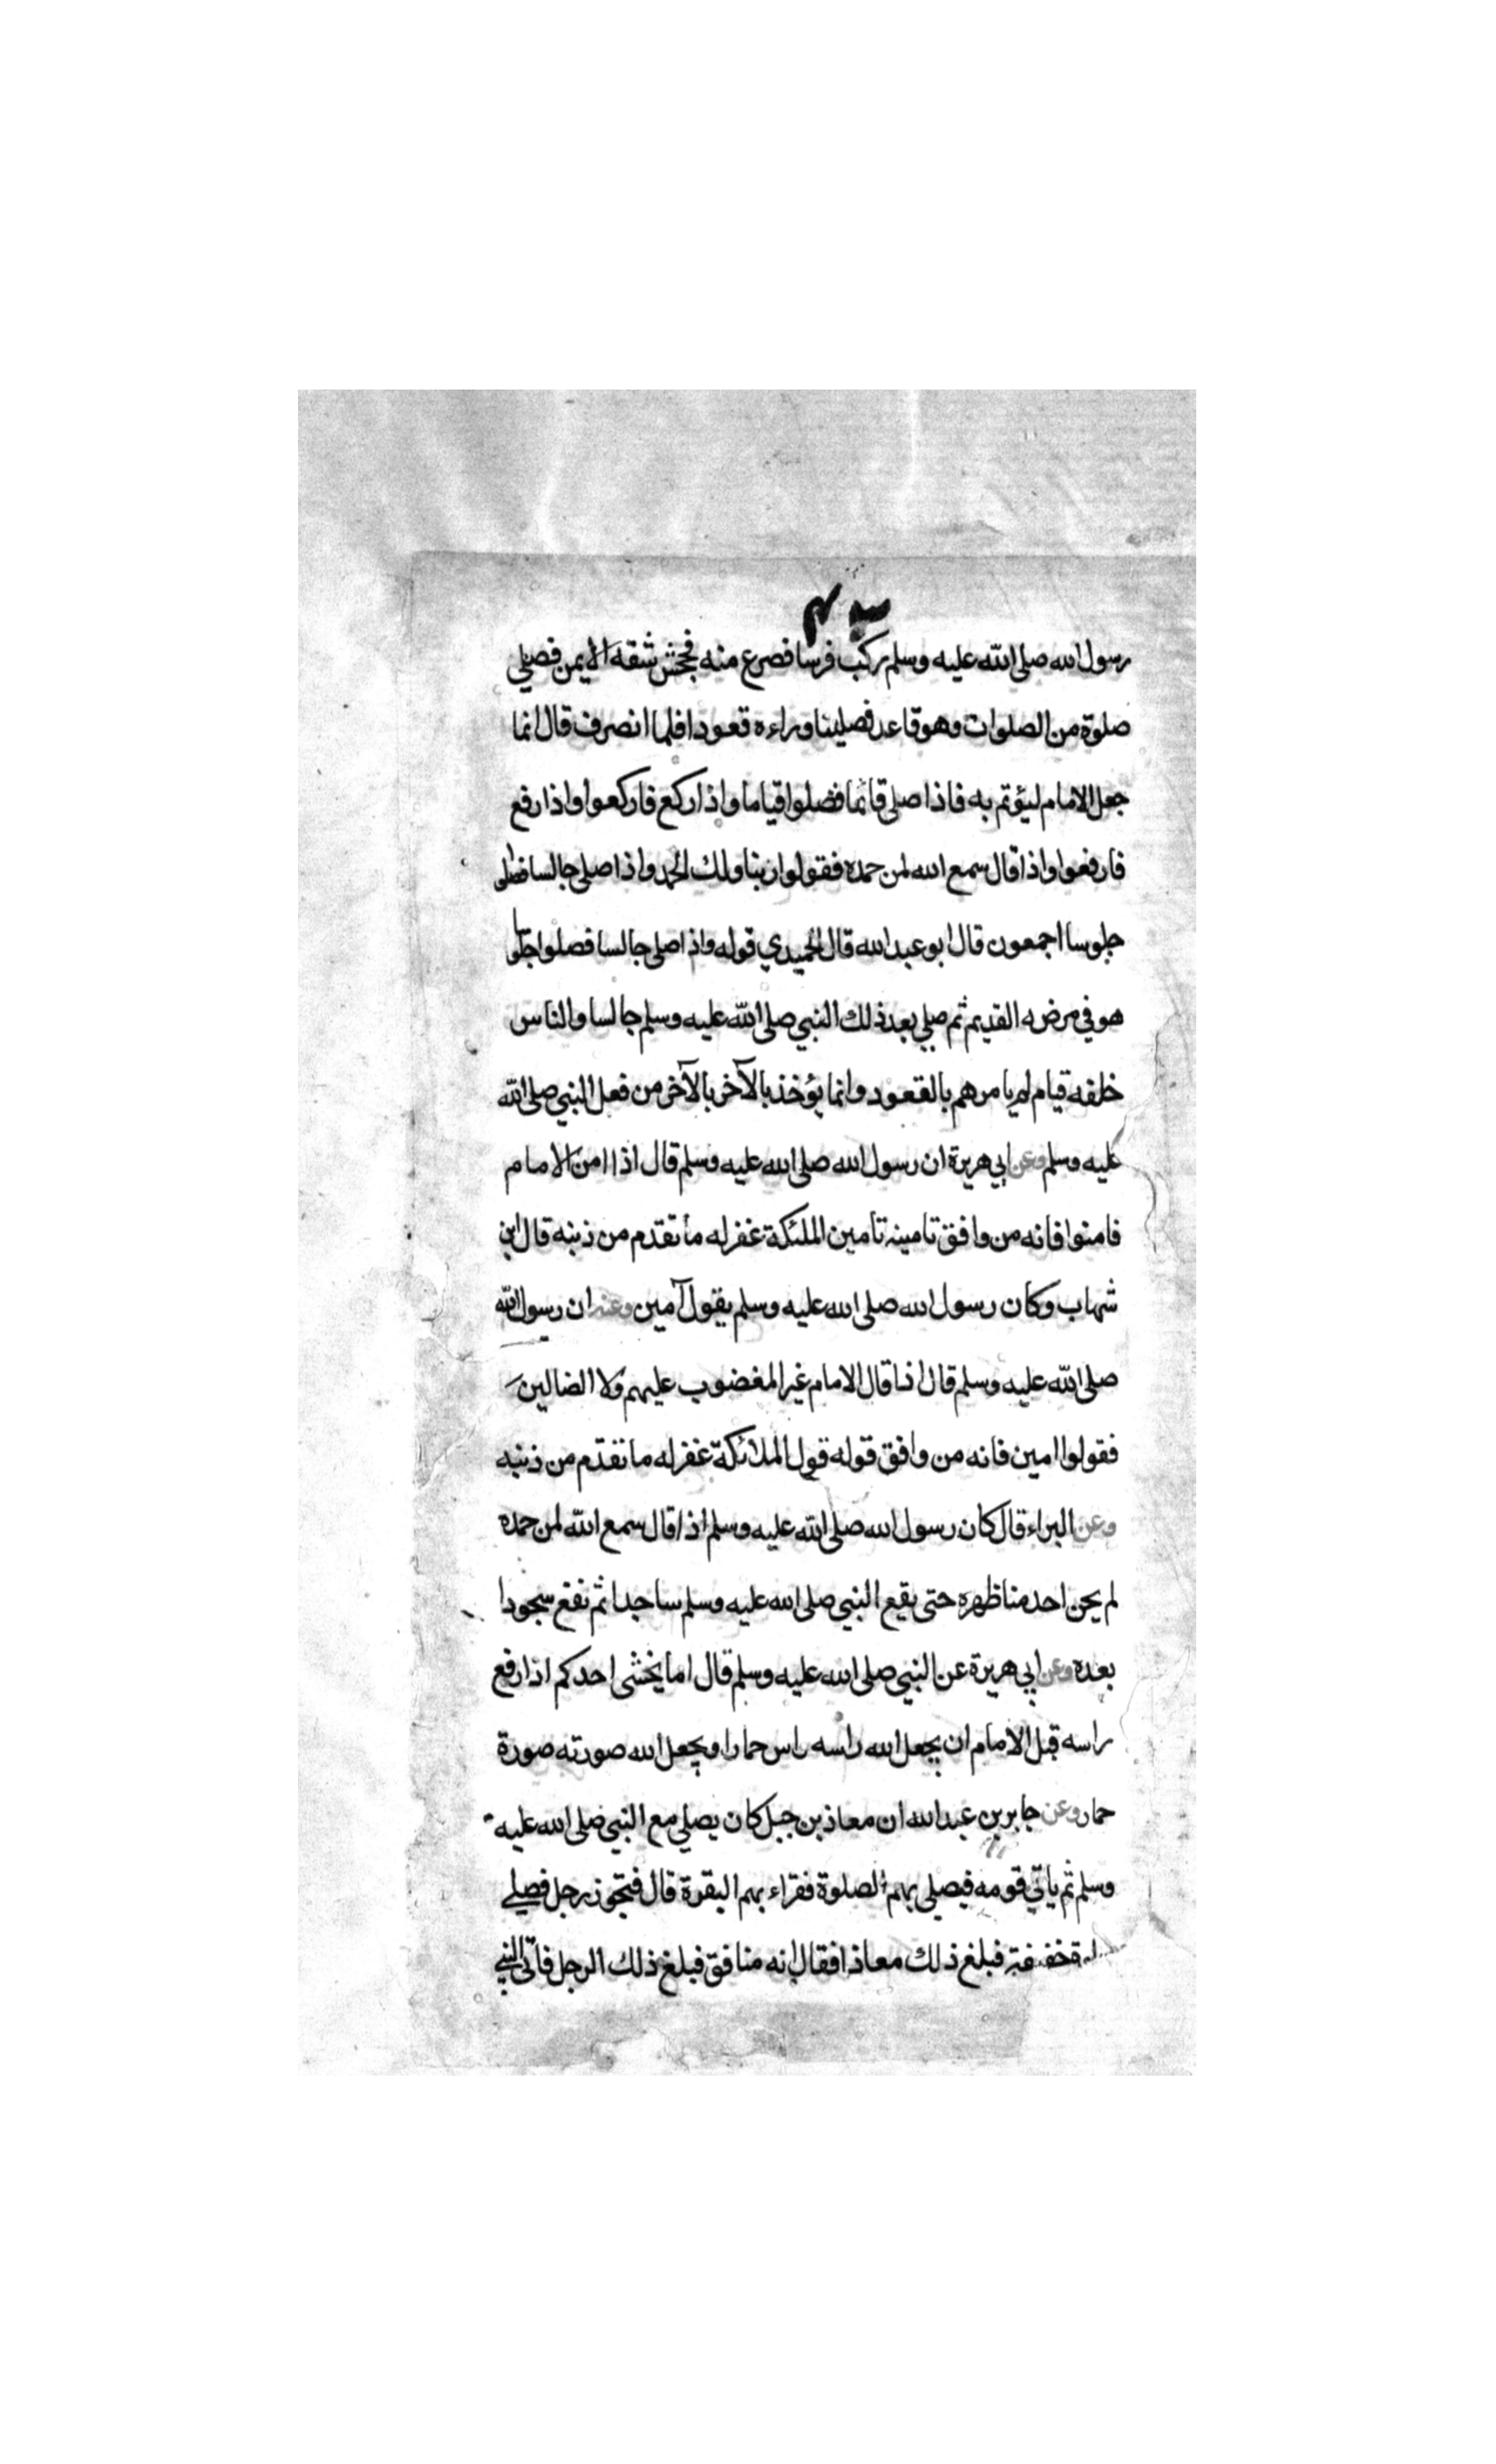 رسول الله صلى الله عليه وسلم ركب فرسا فصرع منه فجحش شقه الايمن فصلي
صلوة من الصلوات وهو قاعد فصلينا وراءه قعودا فلما انصرف قال انما
جعل الامام ليؤتم به فاذا صلى قائما فصلوا قياما واذا ركع فاركعوا واذا رفع
فارفعوا واذا قال سمع الله لمن حمده فقولوا ربنا ولك الحمد واذا صلى جالسا فصلوا
جلوسا اجمعون قال ابو عبد الله قال الحميدي قوله واذا صلى جالسا فصلوا جلوسا
هو في مرضه القديم ثم صلي بعد ذلك النبي صلى الله عليه وسلم جالسا والناس
خلفه قيام لم يامرهم بالقعود وانما يؤخذ بالآخر بالآخر من فعل النبي صلى الله
عليه وسلم وعن ابي هريرة ان رسول الله صلى الله عليه وسلم قال اذا امن الامام
فامنوا فانه من وافق تامينه تامين الملئكة غفر له ما تقدم من ذنبه قال ابن
شهاب وكان رسول الله صلى الله عليه وسلم يقول آمين وعنه ان رسول الله
صلى الله عليه وسلم قال اذا قال الامام غير المغضوب عليهم ولا الضالين
فقولوا امين فانه من وافق قوله قول الملائكة غفر له ما تقدم من ذنبه
وعن البراء قال كان رسول الله صلى الله عليه وسلم اذا قال سمع الله لمن حمده
لم يحن احد منا ظهره حتى يقع النبي صلى الله عليه وسلم ساجدا ثم نقع سجودا
بعده وعن ابي هريرة عن النبي صلى الله عليه وسلم قال اما يخشى احدكم اذا رفع
راسه قبل الامام ان يجعل الله راسه راس حمار او يجعل الله صورته صورة
حمار وعن جابر بن عبد الله ان معاذ بن جبل كان يصلي مع النبي صلى الله عليه
وسلم ثم ياتي قومه فيصلي بهم الصلوة فقراء بهم البقرة قال فتجوز رجل فصلي
خفيفة فبلغ ذلك معاذا فقال انه منافق فبلغ ذلك الرجل فاتى النبي